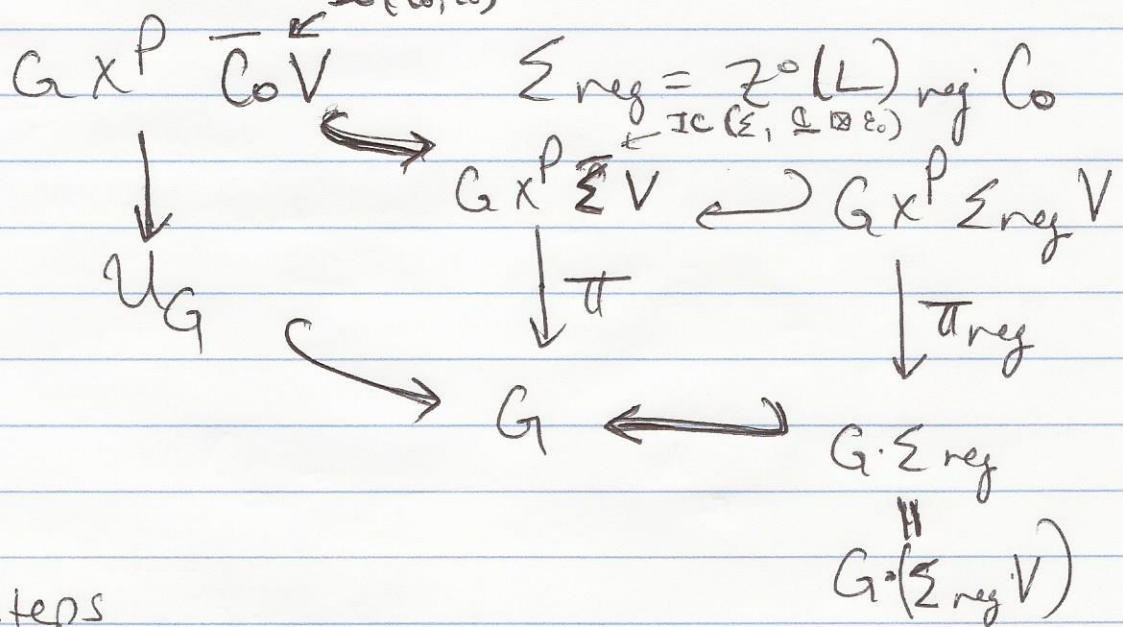 G ×^P \overline{C_0} V
Σ_reg = Z°(L)_reg C_0
IC(Σ, ℂ ⊠ ε_0)
G ×^P \overline{Σ} V
G ×^P Σ_reg V
U_G
π
π_reg
G
G·Σ_reg
||
G·(Σ_reg·V)
teps